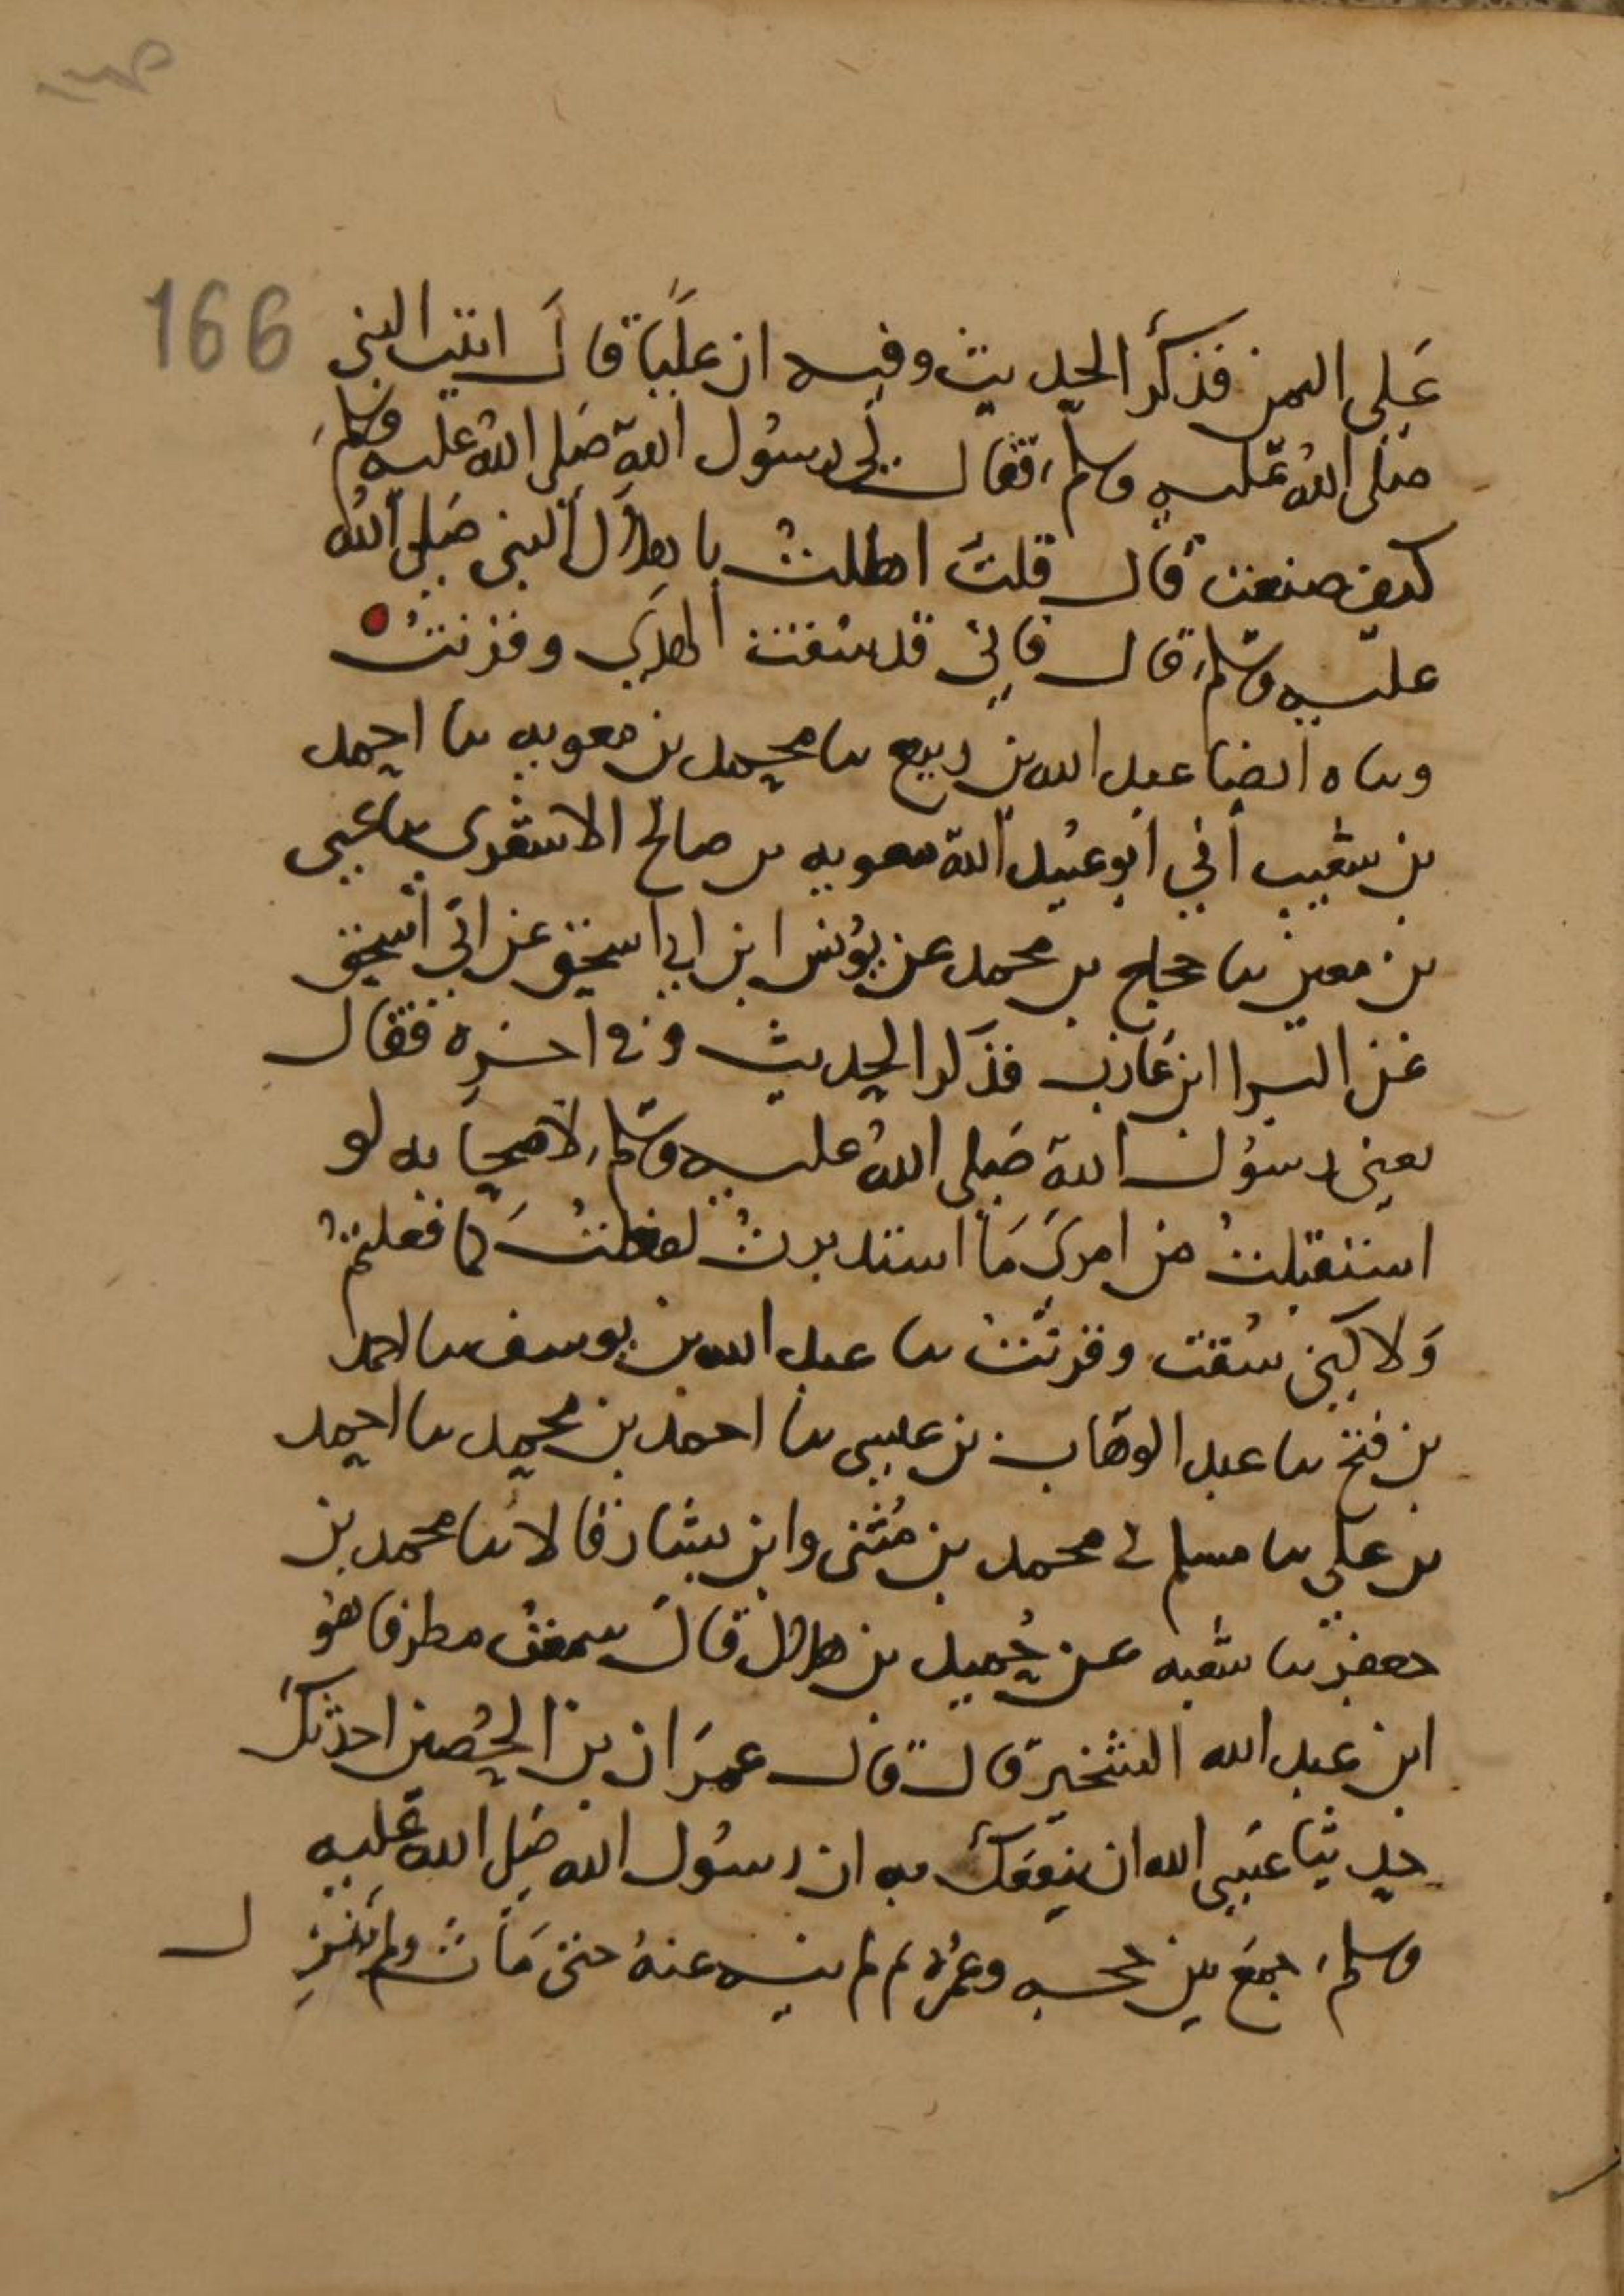 166
على اليمن فذكر الحديث وفيه ان عليا قال اتيت النبي
صلى الله عليه وسلم فقال لي رسول الله صلى الله عليه وسلم
كيف صنعت قال قلت اهللت باهلال النبي صلى الله
عليه وسلم قال فاني قد سقت الهدي وقرنت
وساه ايضا عبد الله بن ربيع سا محمد بن معويه سا احمد
بن شعيب اني ابو عبيد الله معويه بن صالح الاشعري سا يحيى
بن معين سا حجاج بن محمد عن يونس ابن ابي اسحق عن ابي اسحق
عن البرا ابن عازب فذكر الحديث وفي اخره فقال
يعني رسول الله صلى الله عليه وسلم لاصحابه لو
استقبلت من امري ما استدبرت لفعلت كما فعلتم
ولاكني سقت وقرنت سا عبد الله بن يوسف سا احمد
بن فتح سا عبد الوهاب بن عيسى سا احمد بن محمد سا احمد
بن علي سا مسلم ني محمد بن مثنى وابن بشار قالا سا محمد بن
جعفر سا شعبه عن حميد بن هلال قال سمعت مطرفا هو
ابن عبد الله الشخير قال قال عمران بن الحصين احدثك
حديثا عسى الله ان ينفعك به ان رسول الله صلى الله عليه
وسلم جمع بين حجه وعمره ثم لم ينه عنه حتى مات ولم ينز
ل